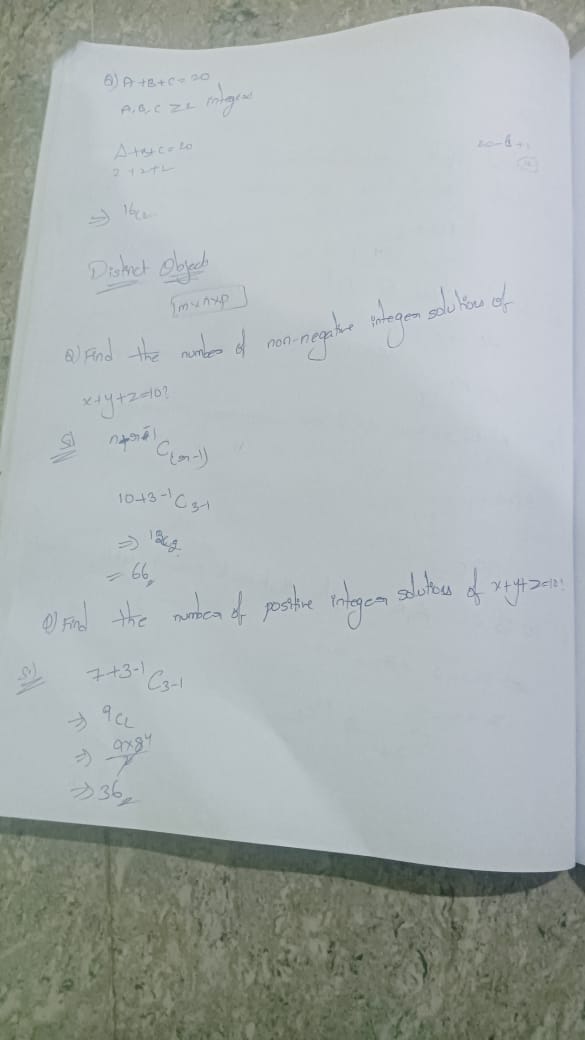 Q) A+B+C=20
A,B,C ≥2 integers
A+B+C=20
2+2+2
20-6+
⇒ 16C2
Distinct Objects
m×n×p
Q) Find the number of non-negative integer solutions of
x+y+z=10?
Sol
C(r-1)
10+3-1 C 3-1
⇒ 12C2
= 66
Q) Find the number of positive integer solutions of x+y+z=10?
Sol)
7+3-1 C 3-1
⇒ 9C2
⇒ 9×8 4
2
⇒ 36